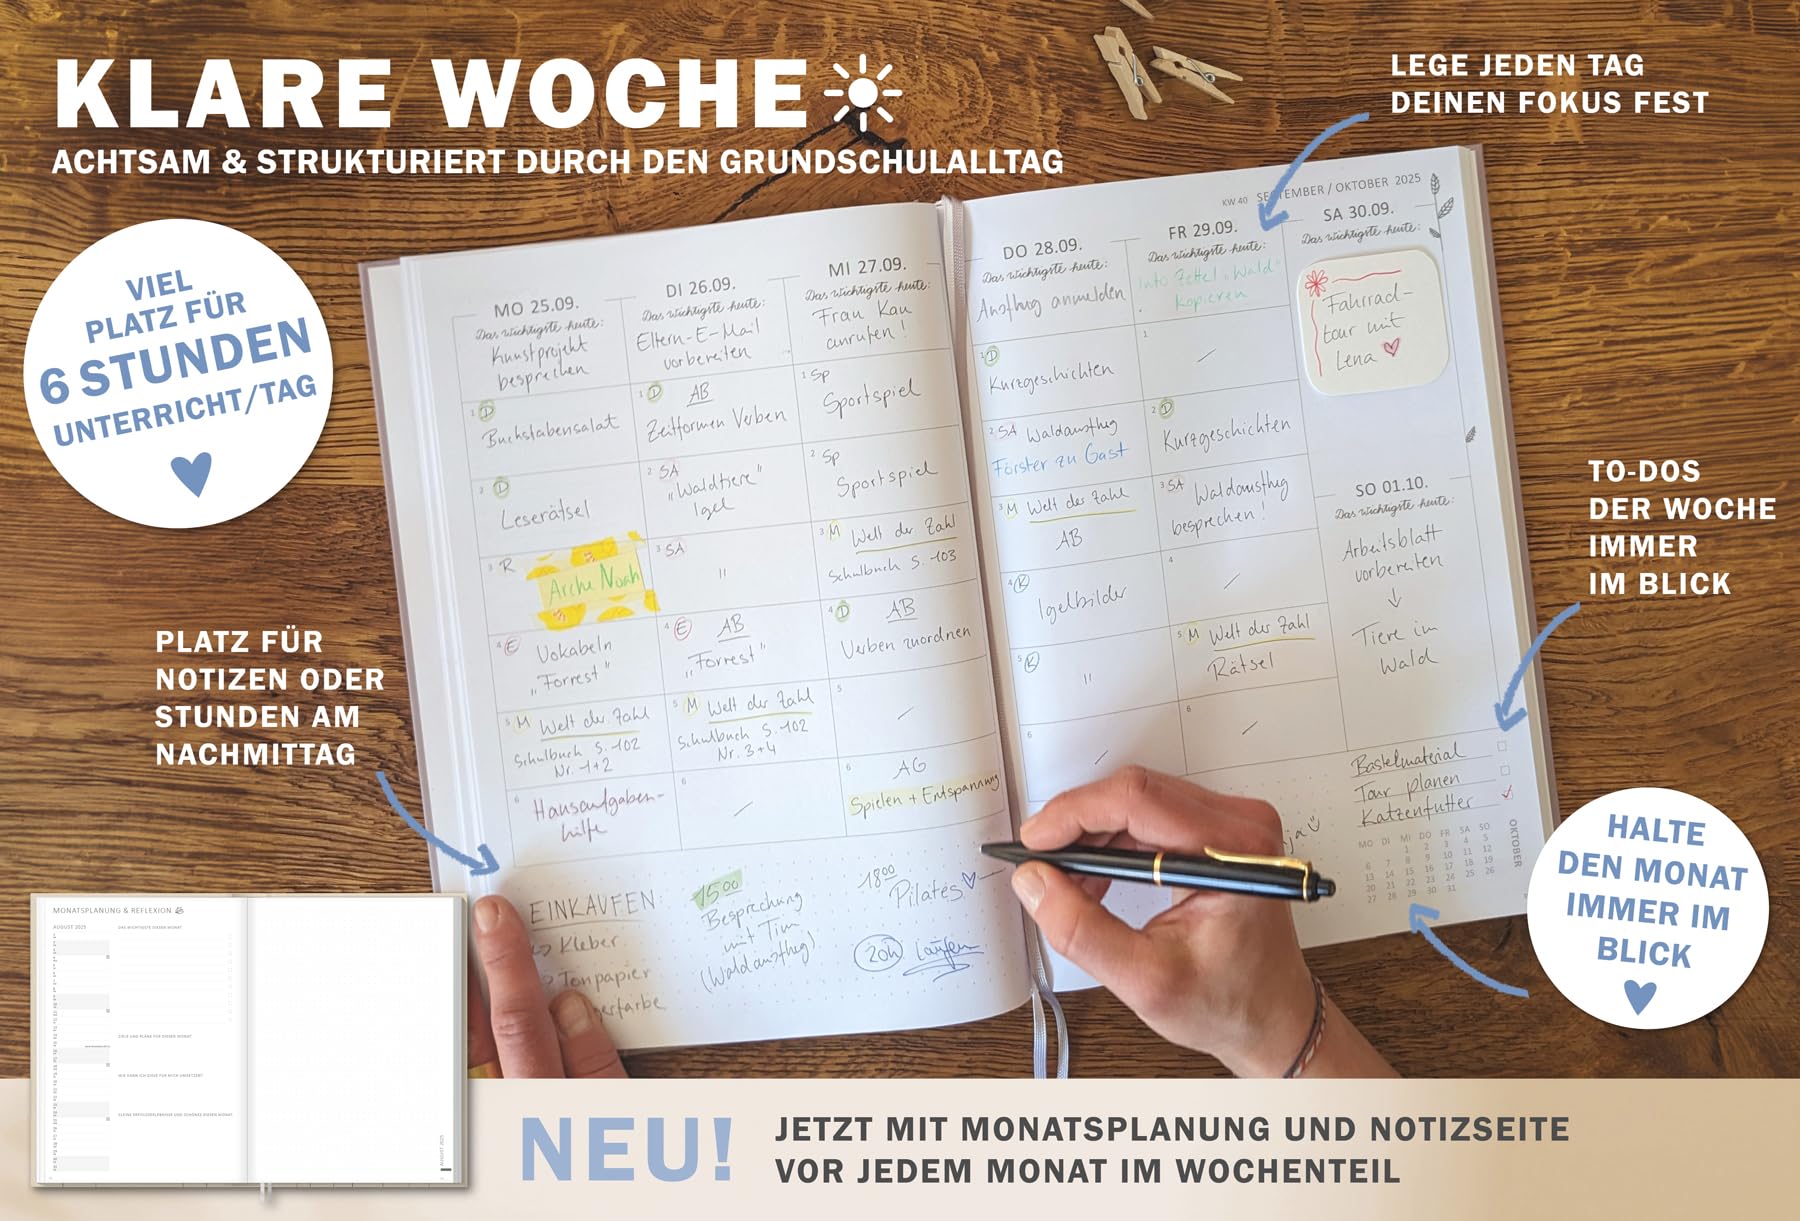 KLARE WOCHE
ACHTSAM & STRUKTURIERT DURCH DEN GRUNDSCHULALLTAG
LEGE JEDEN TAG
DEINEN FOKUS FEST
VIEL
PLATZ FÜR
6 STUNDEN
UNTERRICHT/TAG
PLATZ FÜR
NOTIZEN ODER
STUNDEN AM
NACHMITTAG
TO-DOS
DER WOCHE
IMMER
IM BLICK
HALTE
DEN MONAT
IMMER IM
BLICK
KW 40 SEPTEMBER / OKTOBER 2025
MO 25.09.
Das wichtigste heute:
Kunstprojekt
besprechen
1 D
Buchstabensalat
2 D
Leserätsel
3 R
Arche Noah
4 E Vokabeln
"Forrest"
5 M Welt der Zahl
Schulbuch S. 102
Nr. 1+2
6 Hausaufgaben-
hilfe
DI 26.09.
Das wichtigste heute:
Eltern-E-Mail
vorbereiten
1 D AB
Zeitformen Verben
2 SA
"Waldtiere"
Igel
3 SA
"
4 E AB
"Forrest"
5 M Welt der Zahl
Schulbuch S. 102
Nr. 3+4
6
MI 27.09.
Das wichtigste heute:
Frau Kau
anrufen!
1 Sp
Sportspiel
2 Sp
Sportspiel
3 M Welt der Zahl
Schulbuch S. 103
4 D AB
Verben zuordnen
5
6 AG
Spielen + Entspannung
EINKAUFEN:
Kleber
Tonpapier
15 00
Besprechung
mit Tim
(Waldausflug)
18 00
Pilates
20h Laufen
DO 28.09.
Das wichtigste heute:
Ausflug anmelden
1 D
Kurzgeschichten
2 SA Waldausflug
Förster zu Gast
3 M Welt der Zahl
AB
4 K
Igelbilder
5 K
"
6
FR 29.09.
Das wichtigste heute:
Info Zettel "Wald"
Kopieren
1
2 D
Kurzgeschichten
3 SA Waldausflug
besprechen!
4
5 M Welt der Zahl
Rätsel
6
SA 30.09.
Das wichtigste heute:
Fahrrad-
tour mit
Lena
SO 01.10.
Das wichtigste heute:
Arbeitsblatt
vorbereiten
Tiere im
Wald
Bastelmaterial
Tour planen
Katzenfutter
OKTOBER
MO DI MI DO FR SA SO
1 2 3 4 5
6 7 8 9 10 11 12
13 14 15 16 17 18 19
20 21 22 23 24 25 26
27 28 29 30 31
MONATSPLANUNG & REFLEXION
AUGUST 2025
DAS WICHTIGSTE DIESEN MONAT
AUGUST 2025
NEU!
JETZT MIT MONATSPLANUNG UND NOTIZSEITE
VOR JEDEM MONAT IM WOCHENTEIL